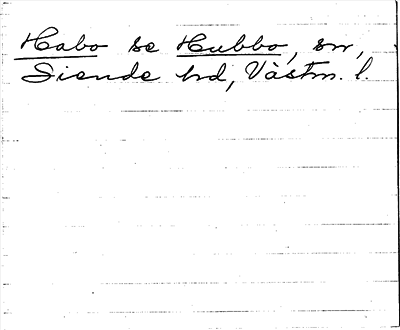 Habo se Hubbo, sn,
Siende hd, Västm. l.